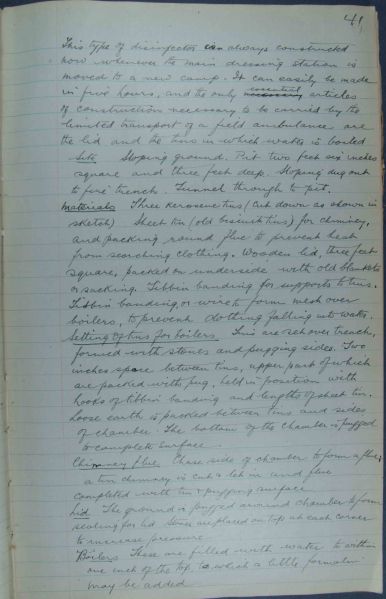 41
This type of disinfector can always constructed
now whenever the main dressing station is
moved to a new camp. It can easily be made
in five hours, and the only necessary essential articles
of construction necessary to be carried by the
limited transport of a field ambulance are
the lid and the tins in which water is boiled
Site Sloping ground. Pit two feet six inches
square and three feet deep. Sloping dug out
to fire trench. Tunnel through to pit.
Materials Three kerosene tins (cut down as shown in
sketch) Sheet tin (old biscuit tins) for chimney,
and packing round flue to prevent heat
from scorching clothing. Wooden lid, three feet
square, packed on underside with old blankets
or sacking. Tibbin banding for supports to tins.
Tibbin banding, or wire to form mesh over
boilers, to prevent clothing falling into water.
Setting of tins for boilers Tins are set over trench,
formed with stones and pugging sides. Two
inches space between tins, upper part of which
are packed with pug, held in position with
hooks of tibbin banding and lengths of sheet tin.
Loose earth is packed between tins and sides
of chamber. The bottom of the chamber is pugged
to complete surface.
Chimney flue Chase side of chamber to form a flue,
a tin chimney is cut & let in and flue
completed with tin & pugging surface
Lid The ground is pugged around chamber to form
seating for lid Stones are placed on top at each corner
to increase pressure
Boilers These are filled with water to within
one inch of the top, to which a little formalin
may be added